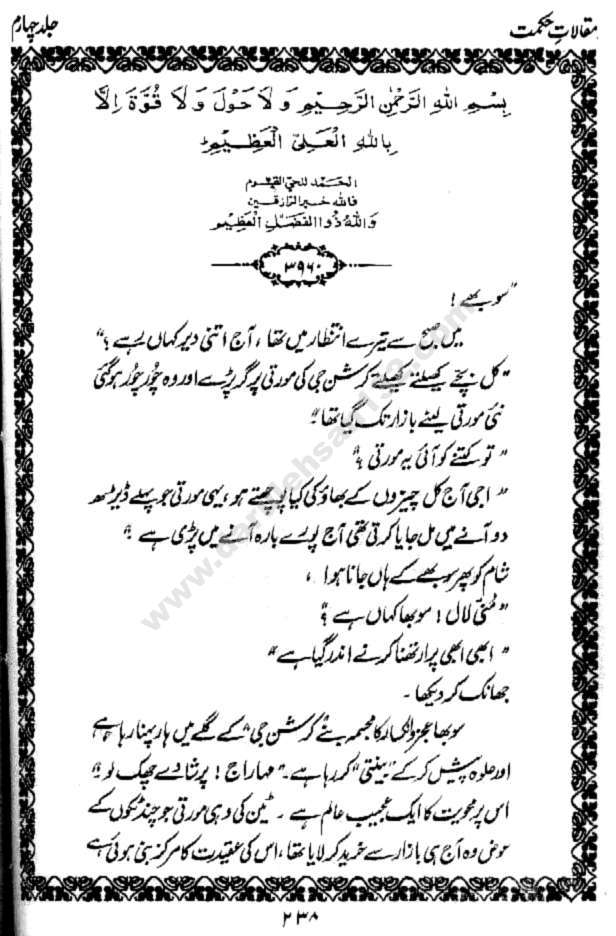 مقالاتِ حکمت
جلد چہارم
بِسْمِ اللهِ الرَّحْمٰنِ الرَّحِيْمِ وَلَا حَوْلَ وَلَا قُوَّةَ اِلَّا
بِاللهِ الْعَلِىِّ الْعَظِيْمِ ط
الحَمْد للحَيِّ القَيُّوم
فالله خير الرازقين
وَاللهُ ذُو الفَضْلِ الْعَظِيْمِ
۳۹۶۰
"سوبھے!
میں صبح سے تیرے انتظار میں تھا، آج اتنی دیر کہاں رہے؟"
"کل بچے کھیلتے کھیلتے کرشن جی کی مورتی پر گر پڑے اور وہ چُور چُور ہو گئی
نئی مورتی لینے بازار تک گیا تھا۔"
"تو کتنے کو آئی یہ مورتی؟"
"اجی آج کل چیزوں کے بھاؤ کی کیا پوچھتے ہو، یہی مورتی جو پہلے ڈیڑھ
دو آنے میں مل جایا کرتی تھی آج پورے بارہ آنے میں پڑی ہے۔"
شام کو پھر سوبھے کے ہاں جانا ہوا،
"مُنّی لال! سوبھا کہاں ہے؟"
"ابھی ابھی پرارتھنا کرنے اندر گیا ہے"
جھانک کر دیکھا۔
سوبھا عجز و انکسار کا مجسمہ بنے کرشن جی کے گلے میں ہار پہنا رہا ہے
اور حلوہ پیش کر کے "بینتی" کر رہا ہے۔ "مہاراج! پرشادے چھک لو"
اس پر محویت کا ایک عجیب عالم ہے۔ ٹین کی وہی مورتی جو چند ٹکوں کے
عوض وہ آج ہی بازار سے خرید کر لایا تھا، اس کی عقیدت کا مرکز بنی ہوئی ہے
۲۳۸